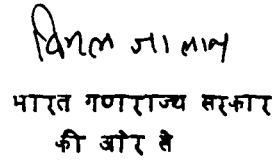 विमल जालान
भारत गणराज्य सरकार
की ओर से